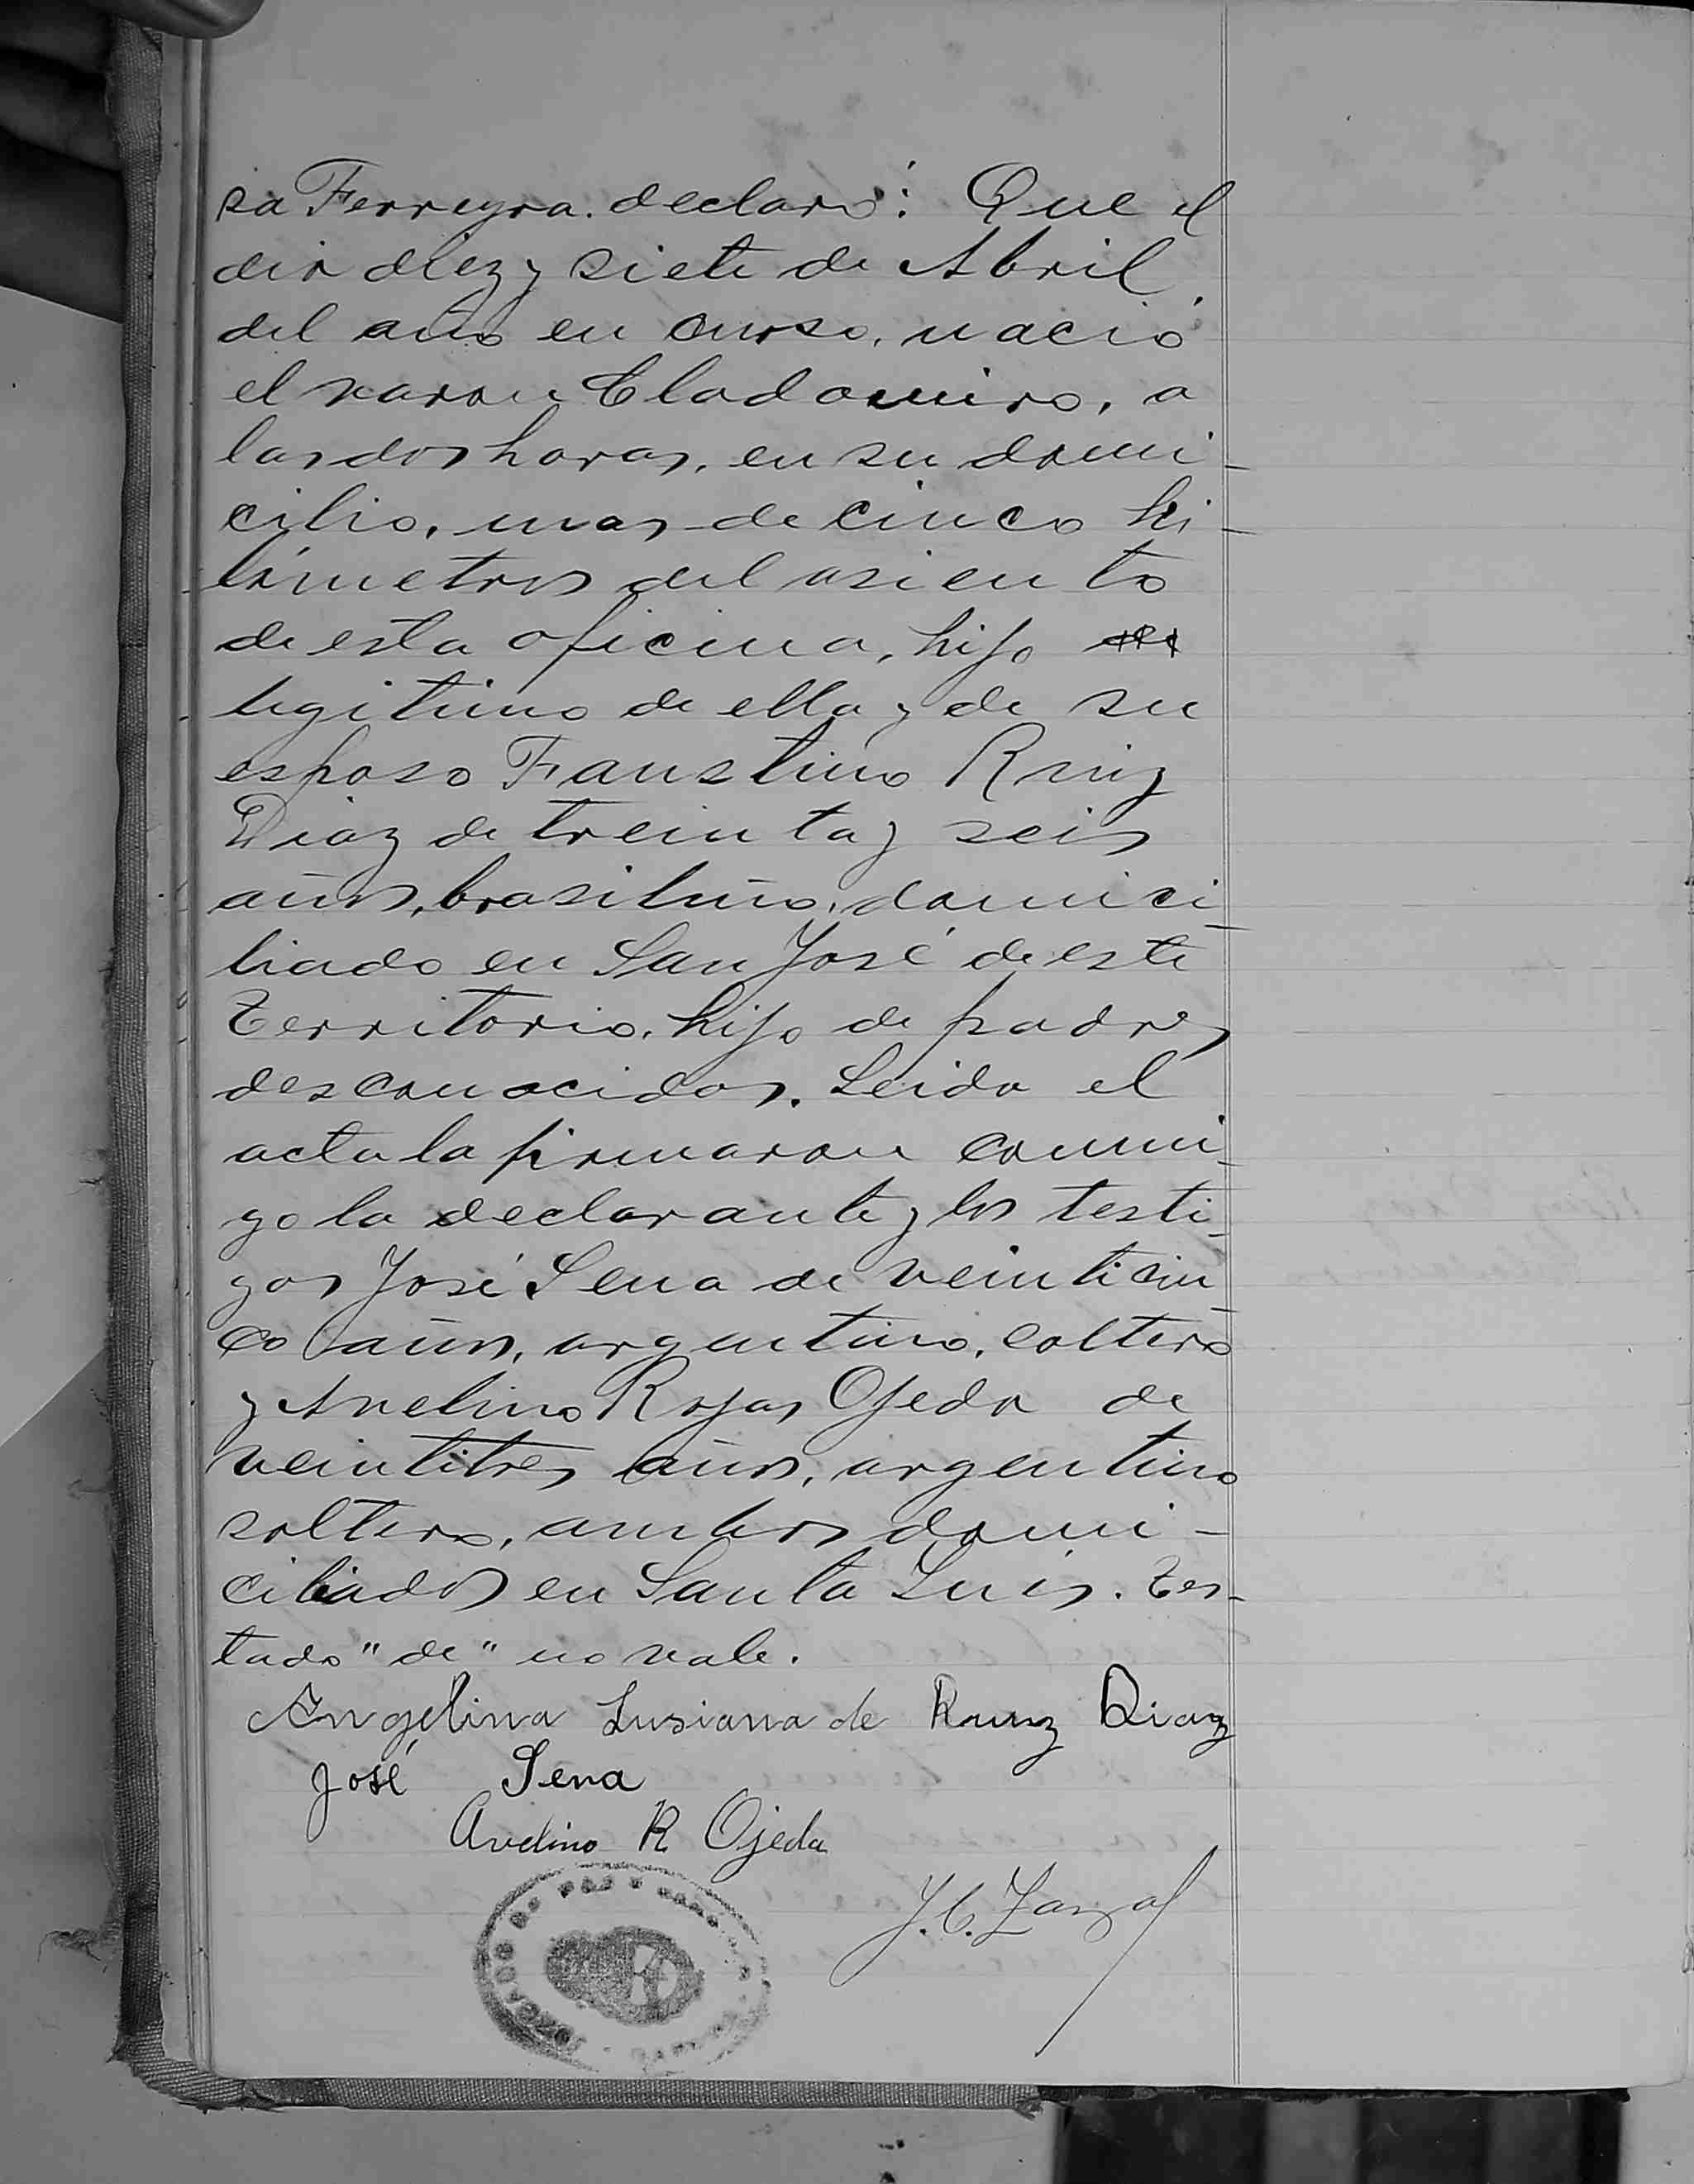 sa Ferreyra. declaró: Que el
dia diez y siete de Abril
del año en curso, nació
el varon Clodomiro, a
las dos horas, en su domi-
cilio, mas de cinco ki-
lómetros del asiento
de esta oficina, hijo de
legitimo de ella y de su
esposo Faustino Ruiz
Diaz de treinta y seis
años, brasileño, domici-
liado en San José de este
Territorio, hijo de padres
desconocidos. Leida el
acta la firmaron conmi-
go la declarante y los testi-
gos José Sena de veinticin-
co años, argentino, soltero
y Avelino Rojas Ojeda de
veintitres años, argentino
soltero, ambos domi-
ciliados en Santa Luis. Tes-
tado "de" no vale.
Angelina Lusiana de Ruiz Diaz
José Sena
Avelino R Ojeda
J. C.
JUZGADO DE PAZ